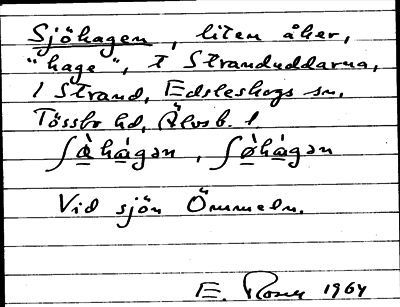 Sjöhagen, liten åker,
"hage", t Stranduddarna,
1 Strand, Edsleskogs sn.
Tössbo hd, Älvsb. l
ʃø̀hàgən, ʃø̀hàgən
Vid sjön Ömmeln.
E. Rosen 1964